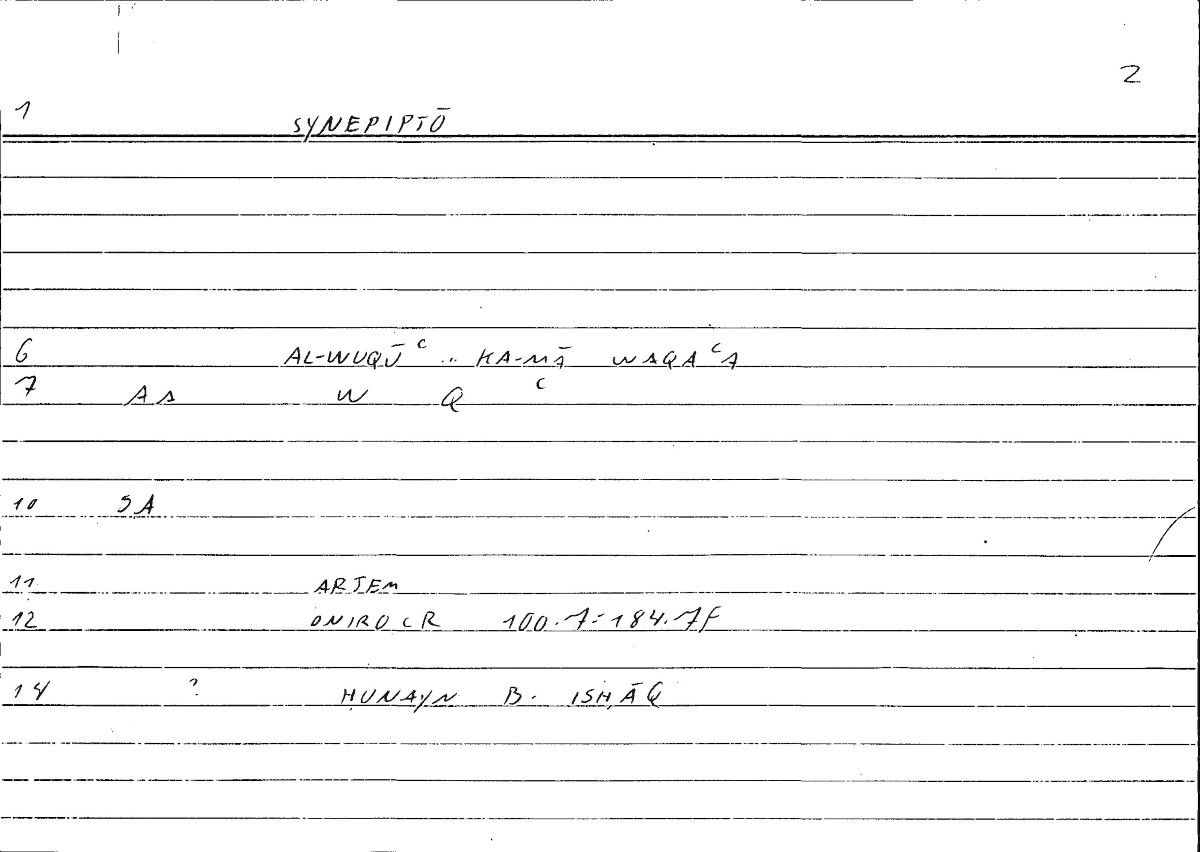 2
1 SYNEPIPTŌ
6 AL-WUQŪʿ .. KA-MĀ WAQAʿA
7 AA W Q ʿ
10 SA
11 ARTEM
12 ONIROCR 100.7=184.7F
14 ? ḤUNAYN B. ISḤĀQ